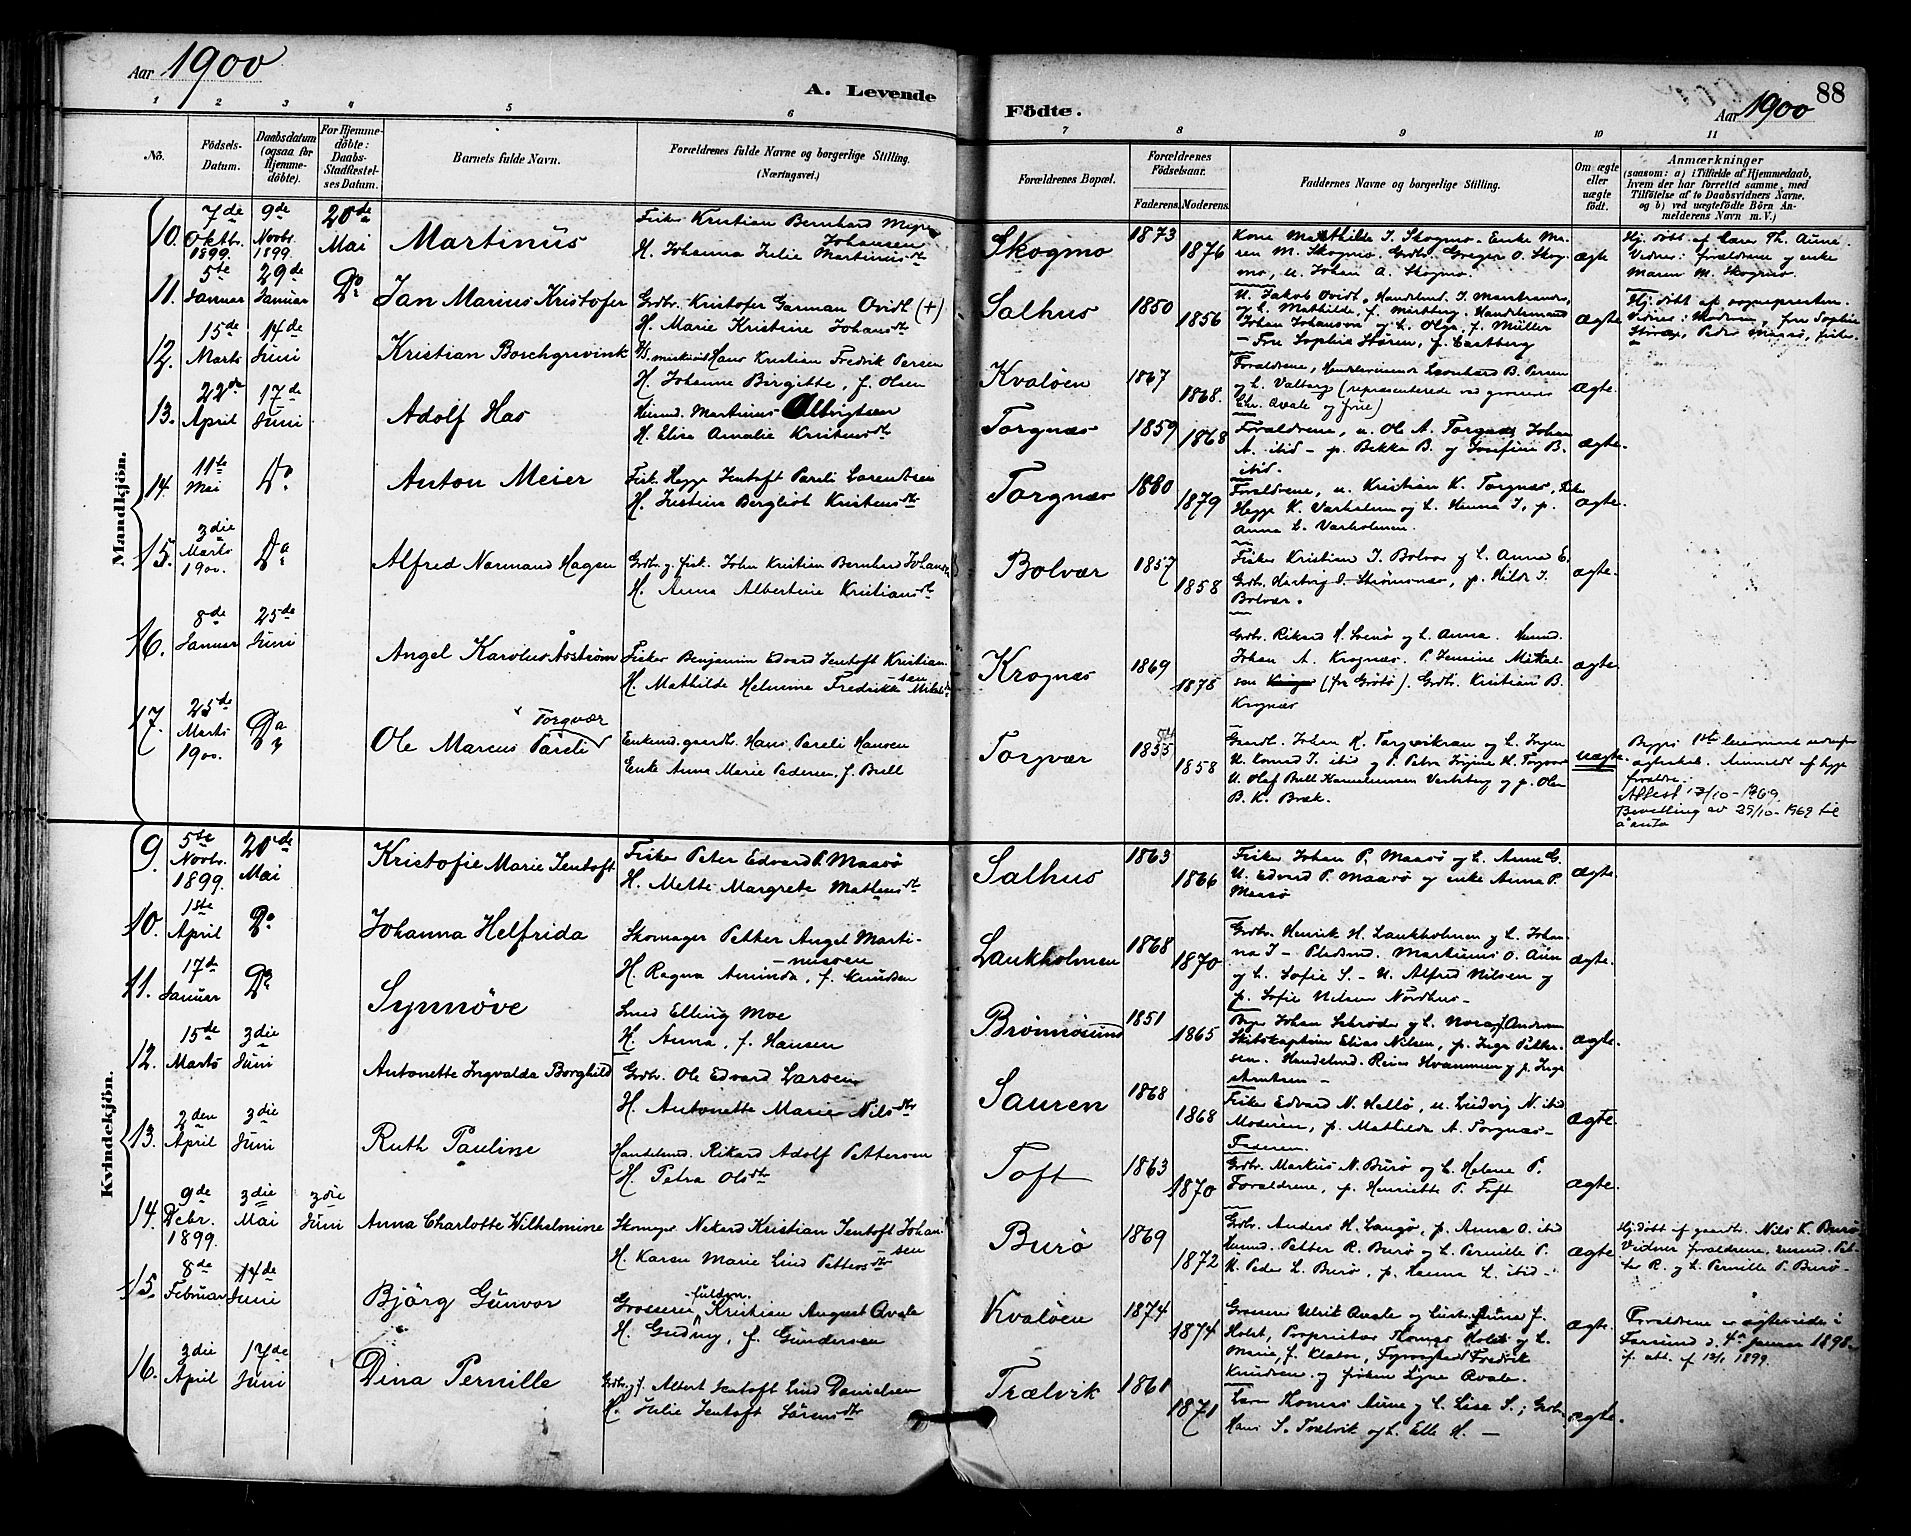 Aar 1900
A. Levende
Födte.
Aar 1900
88
1 2 3 4 5 6 7 8 9 10 11
No.
Födsels-Datum.
Daabsdatum (ogsaa for Hjemme-döbte).
For Hjemme-döbte: Daabs-Stadfæstel-ses Datum.
Barnets fulde Navn.
Forældrenes fulde Navne og borgerlige Stilling.
(Næringsvei.)
Forældrenes Bopæl.
Forældrenes Födselsaar.
Faderens. Moderens.
Faddernes Navne og borgerlige Stilling.
Om ægte eller uægte födt.
Anmærkninger
(saasom: a) i Tilfælde af Hjemmedaab,
hvem der har forrettet samme, med
Tilföielse af to Daabsvidners Navne,
og b) ved uægtefödte Börn An-
melderens Navn m. V.)
Mandkjön.
10. 7de Oktbr. 1899. 9de Novbr. 1899. 20de Mai
Martinus
Fisker Kristian Bernhard Johansen
H. Johanna Julie Martinusdtr
Skogmo 1873 1876
Kone Mathilde J. Skogmo. Enke Ma-
ren M. Skogmo. Grdbr. Greger O. Skog-
mo, u. Johan A. Skogmo.
ægte
Hj. döbt af Lærer Th. Aune
Vidner: forældrene og enke
Maren M. Skogmo.
11. 5te Januar 29de Januar Do
Jan Marius Kristofer
Grdbr. Kristofer Garman Ovidt (+)
H. Marie Kristine Johansdtr
Salhus 1850 1856
U. Jakob Ovidt, Handelsmd. J.
Johan Johanson og h. Olga, f. Müller
Fru Sophie Støren, f. Castberg
ægte
Hj. döbt af sognepresten.
Vidner: Moderen, fru Sophie
Støren, Peder Maasø, fisker
12. 15de Marts 14de Juni
Kristian Borchgrevink
Hans Kristian Fredrik Persen
H. Johanne Birgitte, f. Olsen
Kvaløen 1867 1868.
Forældrene, Leonhard B. Persen
og h. Valborg (representerede ved grosserer
Chr. Qvale og frue)
ægte.
13. 22de April 17de Juni
Adolf Has
Husmd. Martinus Albrigtsen
H. Elise Amalie Kristensdtr
Torgnæs 1859 1868
Forældrene, u. Ole A. Torgnæs Johan
A. ibid - p. Bekka B. og Josefine B.
ibid.
ægte.
14. 11te Mai Do
Anton Meier
Fisk. Hegge Jentoft Pareli Lorentsen
H. Justine Bergliot Kristensdtr
Torgnæs 1880 1879
Forældrene, u. Kristian K. Torgnæs, Fisker
Hegge K. Varholmen og h. Hanna J, p.
Anna L. Varholmen.
ægte.
15. 3die Marts 1900. Do
Alfred Normand Hagen
Grdbr. og fisk. John Kristian Bernhard Johansen
H. Anna Albertine Kristiansdtr
Bolvær 1857 1858
Fisker Kristian J. Bolvær og h. Anna E.
Grdbr. Hartvig J. Strømsnæs, p. Hilda J.
Bolvær.
ægte.
16. 8de Januar 25de Juni
Angel Karolus Åsstrøm
Fisker Benjamin Edvard Jentoft Kristian-
sen
H. Mathilde Helmine Fredrikke Mikals
Krognæs 1869 1875
Grdbr. Rikard H. Srenø og h. Anna. Husmd.
Johan A. Krognæs. P. Jensine Mikal-
sen (fra Grøtø). Grdbr. Kristian B.
Krognæs
ægte.
17. 25de Marts 1900. Do
Torgvær
Ole Marcus Pareli
Enkemd. gaardbr. Hans Pareli Hansen
Enke Anna Marie Pedersen, f. Brell
Torgvær 1855 1858
Gaardbr. Johan K. Torgvikran og h. Inger
U. Konrad J. ibid og P. Petra H. Torgvær
U. Olaf Brell Varbsberg og p. Olea
B. K. Bræk.
uægte.
Begges 1ste leiermaal udenfor
ægteskab. Anmeldt af begge
forældre.
Attest 13/10-1969
Bevilling av 29/10-1969 til
å anta
Kvindekjön.
9. 5te Novbr. 1899. 20de Mai
Kristofie Marie Jentoft
Fisker Peter Edvard P. Maasø
H. Mette Margrete Mathiasdtr
Salhus 1863 1866
Fisker Johan P. Maasø og h. Anne G.
U. Edvard P. Maasø og enke Anna P.
Maasø
ægte.
10. 1ste April Do
Johanna Helfrida
Skomager Petter Angel Marti-
nussen
H. Ragna Aminda, f. Knudsen
Laukholmen 1868 1870
Grdbr. Henrik H. Laukholmen og h. Johan-
na J - Pladsmd. Martinus O. Aun
og h. Sofie S. - U. Alfred Nilsen og
p. Sofie Nilsen Nordhus -
ægte.
11. 17de Januar Do
Synnøve
Smed Elling Moe
H. Anna, f. Hansen
Brønnøsund 1851 1865
Johan Schrøder og h. Nora f. Andersen
Skibskaptein Elias Nilsen, p. Inga Petter-
sen. Handelsmd. Reier Hvammen og p. Inga
Arntsen -
ægte.
12. 15de Marts 3die Juni
Antonette Ingvalda Borghild
Grdbr. Ole Edvard Larsen
H. Antonette Marie Nilsdtr
Sauren 1868 1868
Fisker Edvard N. Hellø, u. Ludvig N. ibid
Moderen, p. Mathilda A Torgnæs -
Faderen.
ægte.
13. 2den April 3die Juni
Ruth Pauline
Handelsmd. Rikard Adolf Pettersen
H. Petra Olsdtr
Toft 1863 1870
Grdbr. Markus N. Burø og h. Helene P.
Forældrene, p. Henriette P. Toft
ægte.
14. 9de Debr. 1899. 3die Mai 3die Juni
Anna Charlotte Wilhelmine
Skomager Nekard Kristian Jentoft Johan-
sen
H. Karen Marie Lind Pettersdtr
Burø 1869 1872
Grdbr. Anders H. Langø, p. Anna O. ibid
Husmd. Petter R. Burø og h. Pernille P.
U. Peder L. Burø, p. Hanna L. ibid -
ægte.
Hj. döbt af gaardbr. Nils K. Burø
Vidner forældrene, husmd. Pet-
ter R. og h. Pernille P. Burø -
15. 8de Februar 14de Juni
Bjørg Gunvor
Grosserer Kristian August Qvale
H. Gudny, f. Gundersen
Kvaløen 1874 1874
Grosserer Ulrik Qvale og hustru Anna f.
Holst, Proprietær Thomas Holst og h.
Marie, f. Klatre, Fyrvogter Fredrik
Knudsen og frøken Signe Qvale.
ægte.
Forældrene er ægteviede i
Farsund d. 4de Januar 1898
if. att. af 12/1 1899.
16. 3die April 17de Juni
Dina Pernille
Grdbr. og f. Albert Jentoft Lind Danielsen
H. Julie Jentoft Sørensdtr
Trælvik 1861 1871
Lærer Thomas Aune og h. Lise S.; Grdbr.
Hans S. Trælvik og h. Elle H. -
ægte.